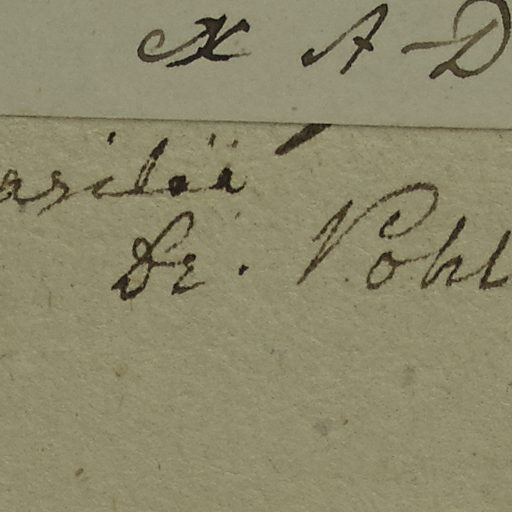 X A-D
asilii
Dr. Pohl